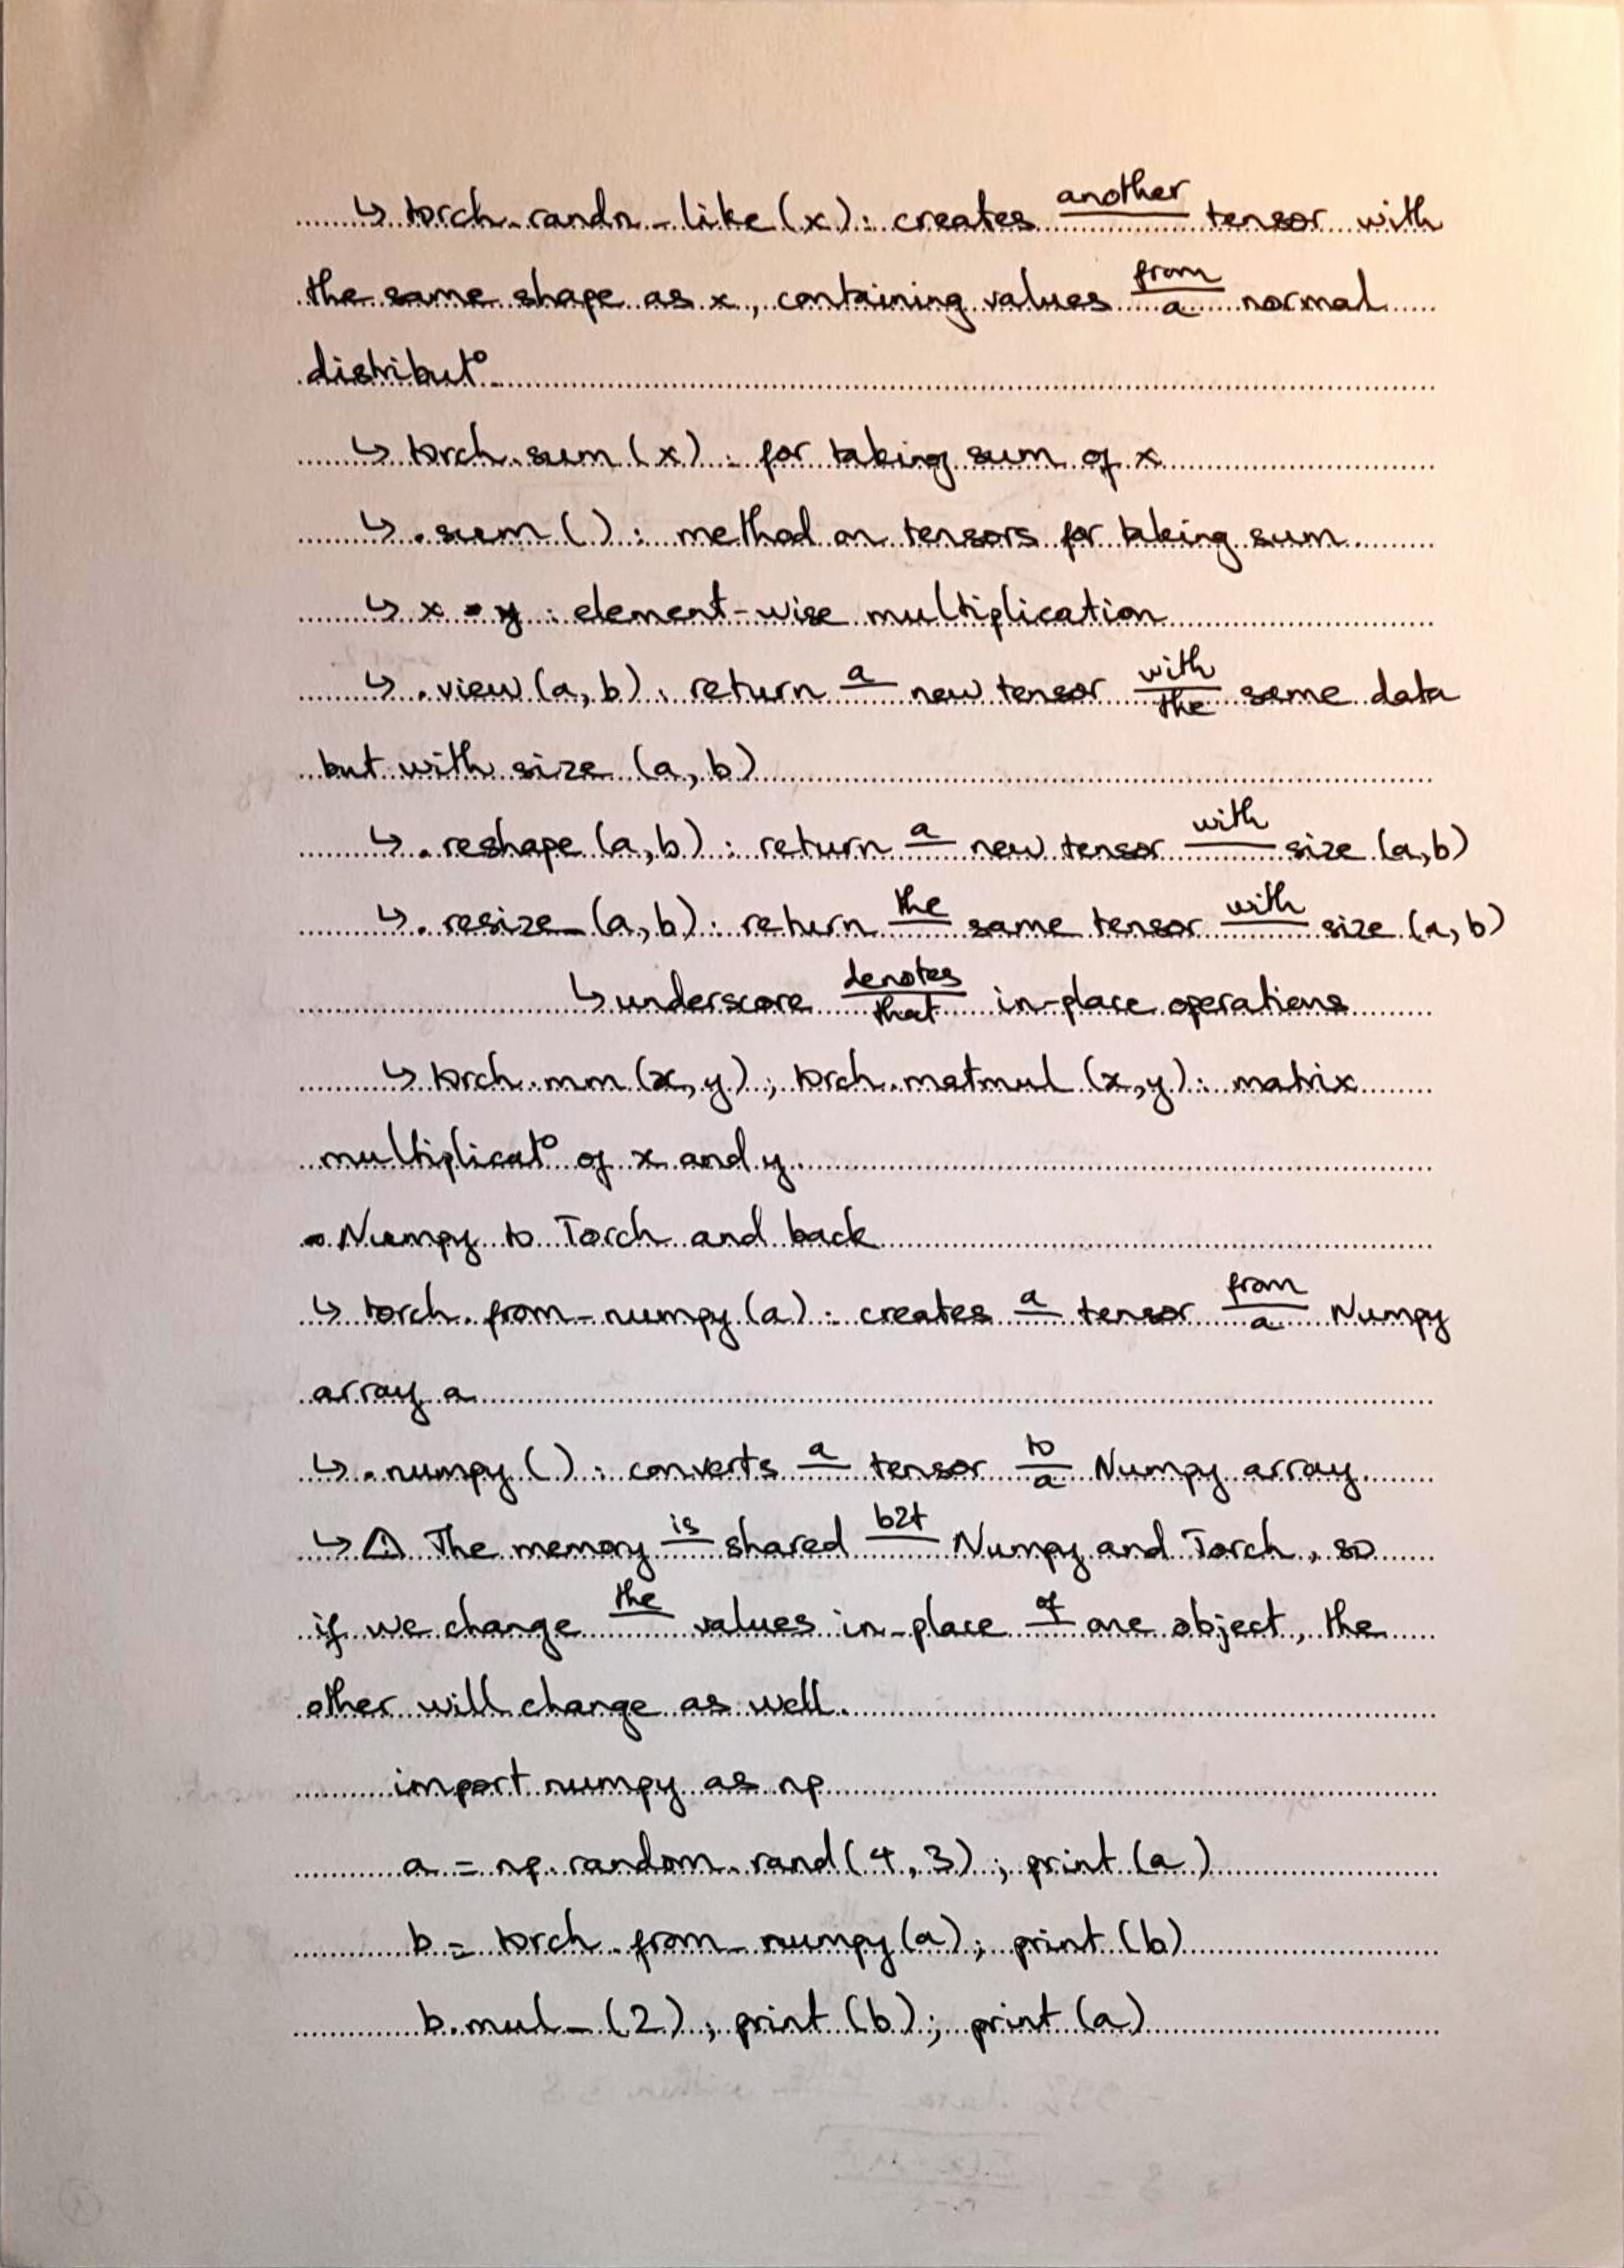 ↳ torch.randn_like(x): creates another tensor with
the same shape as x, containing values from a normal
distribut°
↳ torch.sum(x): for taking sum of x
↳ .sum(): method on tensors for taking sum
↳ x * y: element-wise multiplication
↳ .view(a,b): return a new tensor with the same data
but with size (a,b)
↳ .reshape(a,b): return a new tensor with size (a,b)
↳ .resize_(a,b): return the same tensor with size (a,b)
↳ underscore denotes that in-place operations
↳ torch.mm(x,y); torch.matmul(x,y): matrix
multiplicat° of x and y
- Numpy to Torch and back
↳ torch.from_numpy(a): creates a tensor from a Numpy
array a
↳ .numpy(): converts a tensor to a Numpy array
↳ ⚠ The memory is shared b2t Numpy and Torch, so
if we change the values in-place of one object, the
other will change as well.
import numpy as np
a = np.random.rand(4,3); print(a)
b = torch.from_numpy(a); print(b)
b.mul_(2); print(b); print(a)